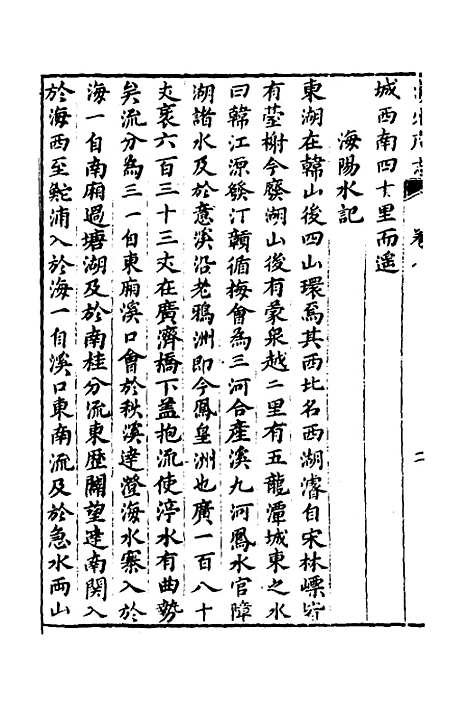 卷
二
城西南四十里而遥
海陽水記
東湖在韓山後四山環焉其西北名西湖濬自宋林㟳皆
有臺榭今廢湖山後有蒙泉越二里有五龍潭城東之水
曰韓江源發汀贛循梅會為三河合產溪九河鳳水官障
湖諸水及於意溪沿老鴉洲即今鳳皇洲也廣一百八十
丈袤六百三十三丈在廣濟橋下葢抱流使渟水有曲勢
矣流分為三一自東廂溪口會於秋溪達澄海水寨入於
海一自南廂過塘湖及於南桂分流東歴闢望達南關入
於海西至鮀浦入於海一自溪口東南流及於急水兩山